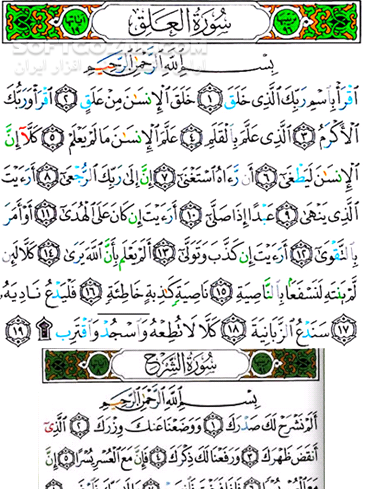 سُورَةُ العَلَق
بِسْمِ اللَّهِ الرَّحْمَٰنِ الرَّحِيمِ
اقْرَأْ بِاسْمِ رَبِّكَ الَّذِي خَلَقَ ١ خَلَقَ الْإِنسَٰنَ مِنْ عَلَقٍ ٢ اقْرَأْ وَرَبُّكَ
الْأَكْرَمُ ٣ الَّذِي عَلَّمَ بِالْقَلَمِ ٤ عَلَّمَ الْإِنسَٰنَ مَا لَمْ يَعْلَمْ ٥ كَلَّا إِنَّ
الْإِنسَٰنَ لَيَطْغَىٰ ٦ أَن رَّءَاهُ اسْتَغْنَىٰ ٧ إِنَّ إِلَىٰ رَبِّكَ الرُّجْعَىٰ ٨ أَرَءَيْتَ
الَّذِي يَنْهَىٰ ٩ عَبْدًا إِذَا صَلَّىٰ ١٠ أَرَءَيْتَ إِن كَانَ عَلَى الْهُدَىٰ ١١ أَوْ أَمَرَ
بِالتَّقْوَىٰ ١٢ أَرَءَيْتَ إِن كَذَّبَ وَتَوَلَّىٰ ١٣ أَلَمْ يَعْلَم بِأَنَّ اللَّهَ يَرَىٰ ١٤ كَلَّا لَئِن
لَّمْ يَنتَهِ لَنَسْفَعًا بِالنَّاصِيَةِ ١٥ نَاصِيَةٍ كَٰذِبَةٍ خَاطِئَةٍ ١٦ فَلْيَدْعُ نَادِيَهُ
١٧ سَنَدْعُ الزَّبَانِيَةَ ١٨ كَلَّا لَا تُطِعْهُ وَاسْجُدْ وَاقْتَرِب ۩ ١٩
سُورَةُ الشَّرْح
بِسْمِ اللَّهِ الرَّحْمَٰنِ الرَّحِيمِ
أَلَمْ نَشْرَحْ لَكَ صَدْرَكَ ١ وَوَضَعْنَا عَنكَ وِزْرَكَ ٢ الَّذِي
أَنقَضَ ظَهْرَكَ ٣ وَرَفَعْنَا لَكَ ذِكْرَكَ ٤ فَإِنَّ مَعَ الْعُسْرِ يُسْرًا ٥ إِنَّ